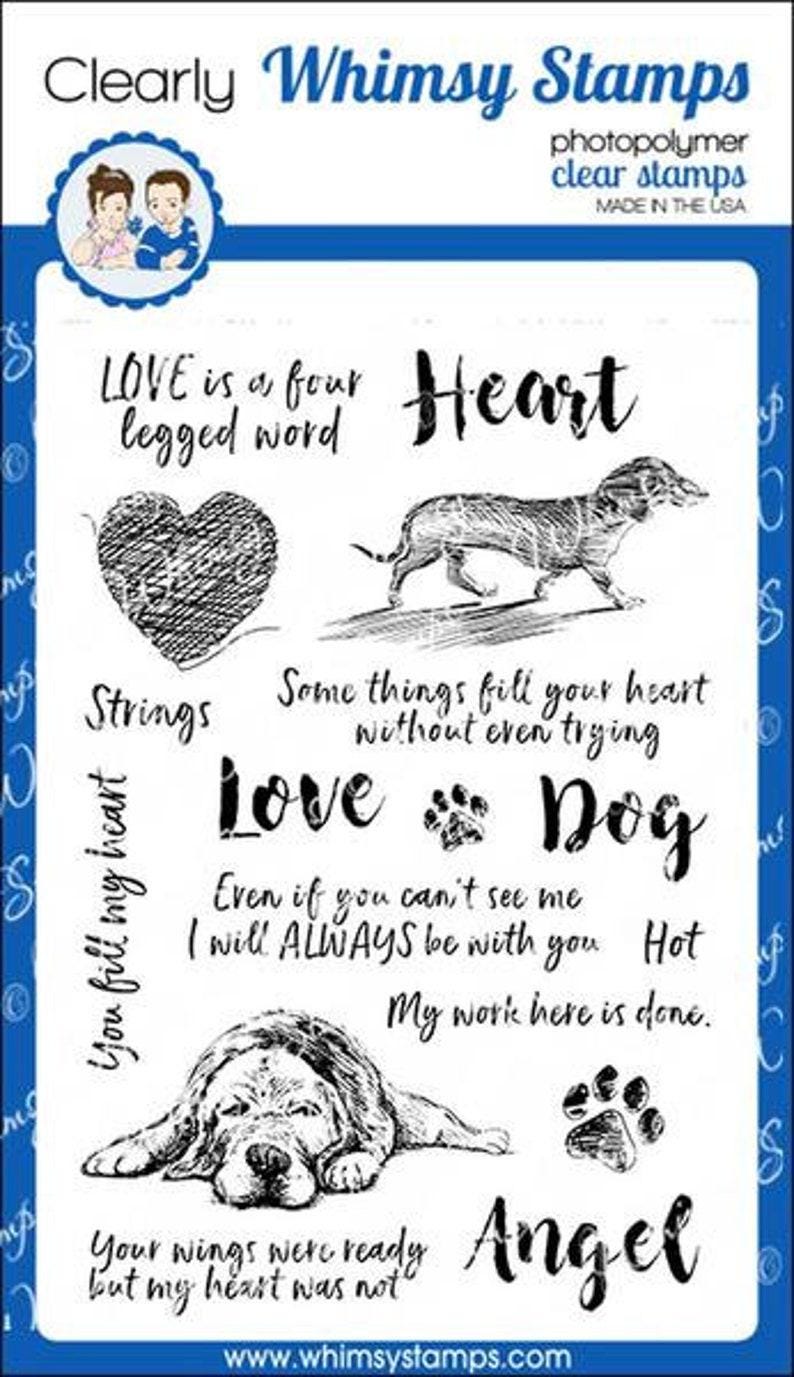 Clearly Whimsy Stamps
photopolymer
clear stamps
MADE IN THE USA
LOVE is a four
legged word
Heart
Strings
Some things fill your heart
without even trying
You fill my heart
Love
Dog
Even if you can't see me
I will ALWAYS be with you
Hot
My work here is done.
Your wings were ready
but my heart was not
Angel
www.whimsystamps.com